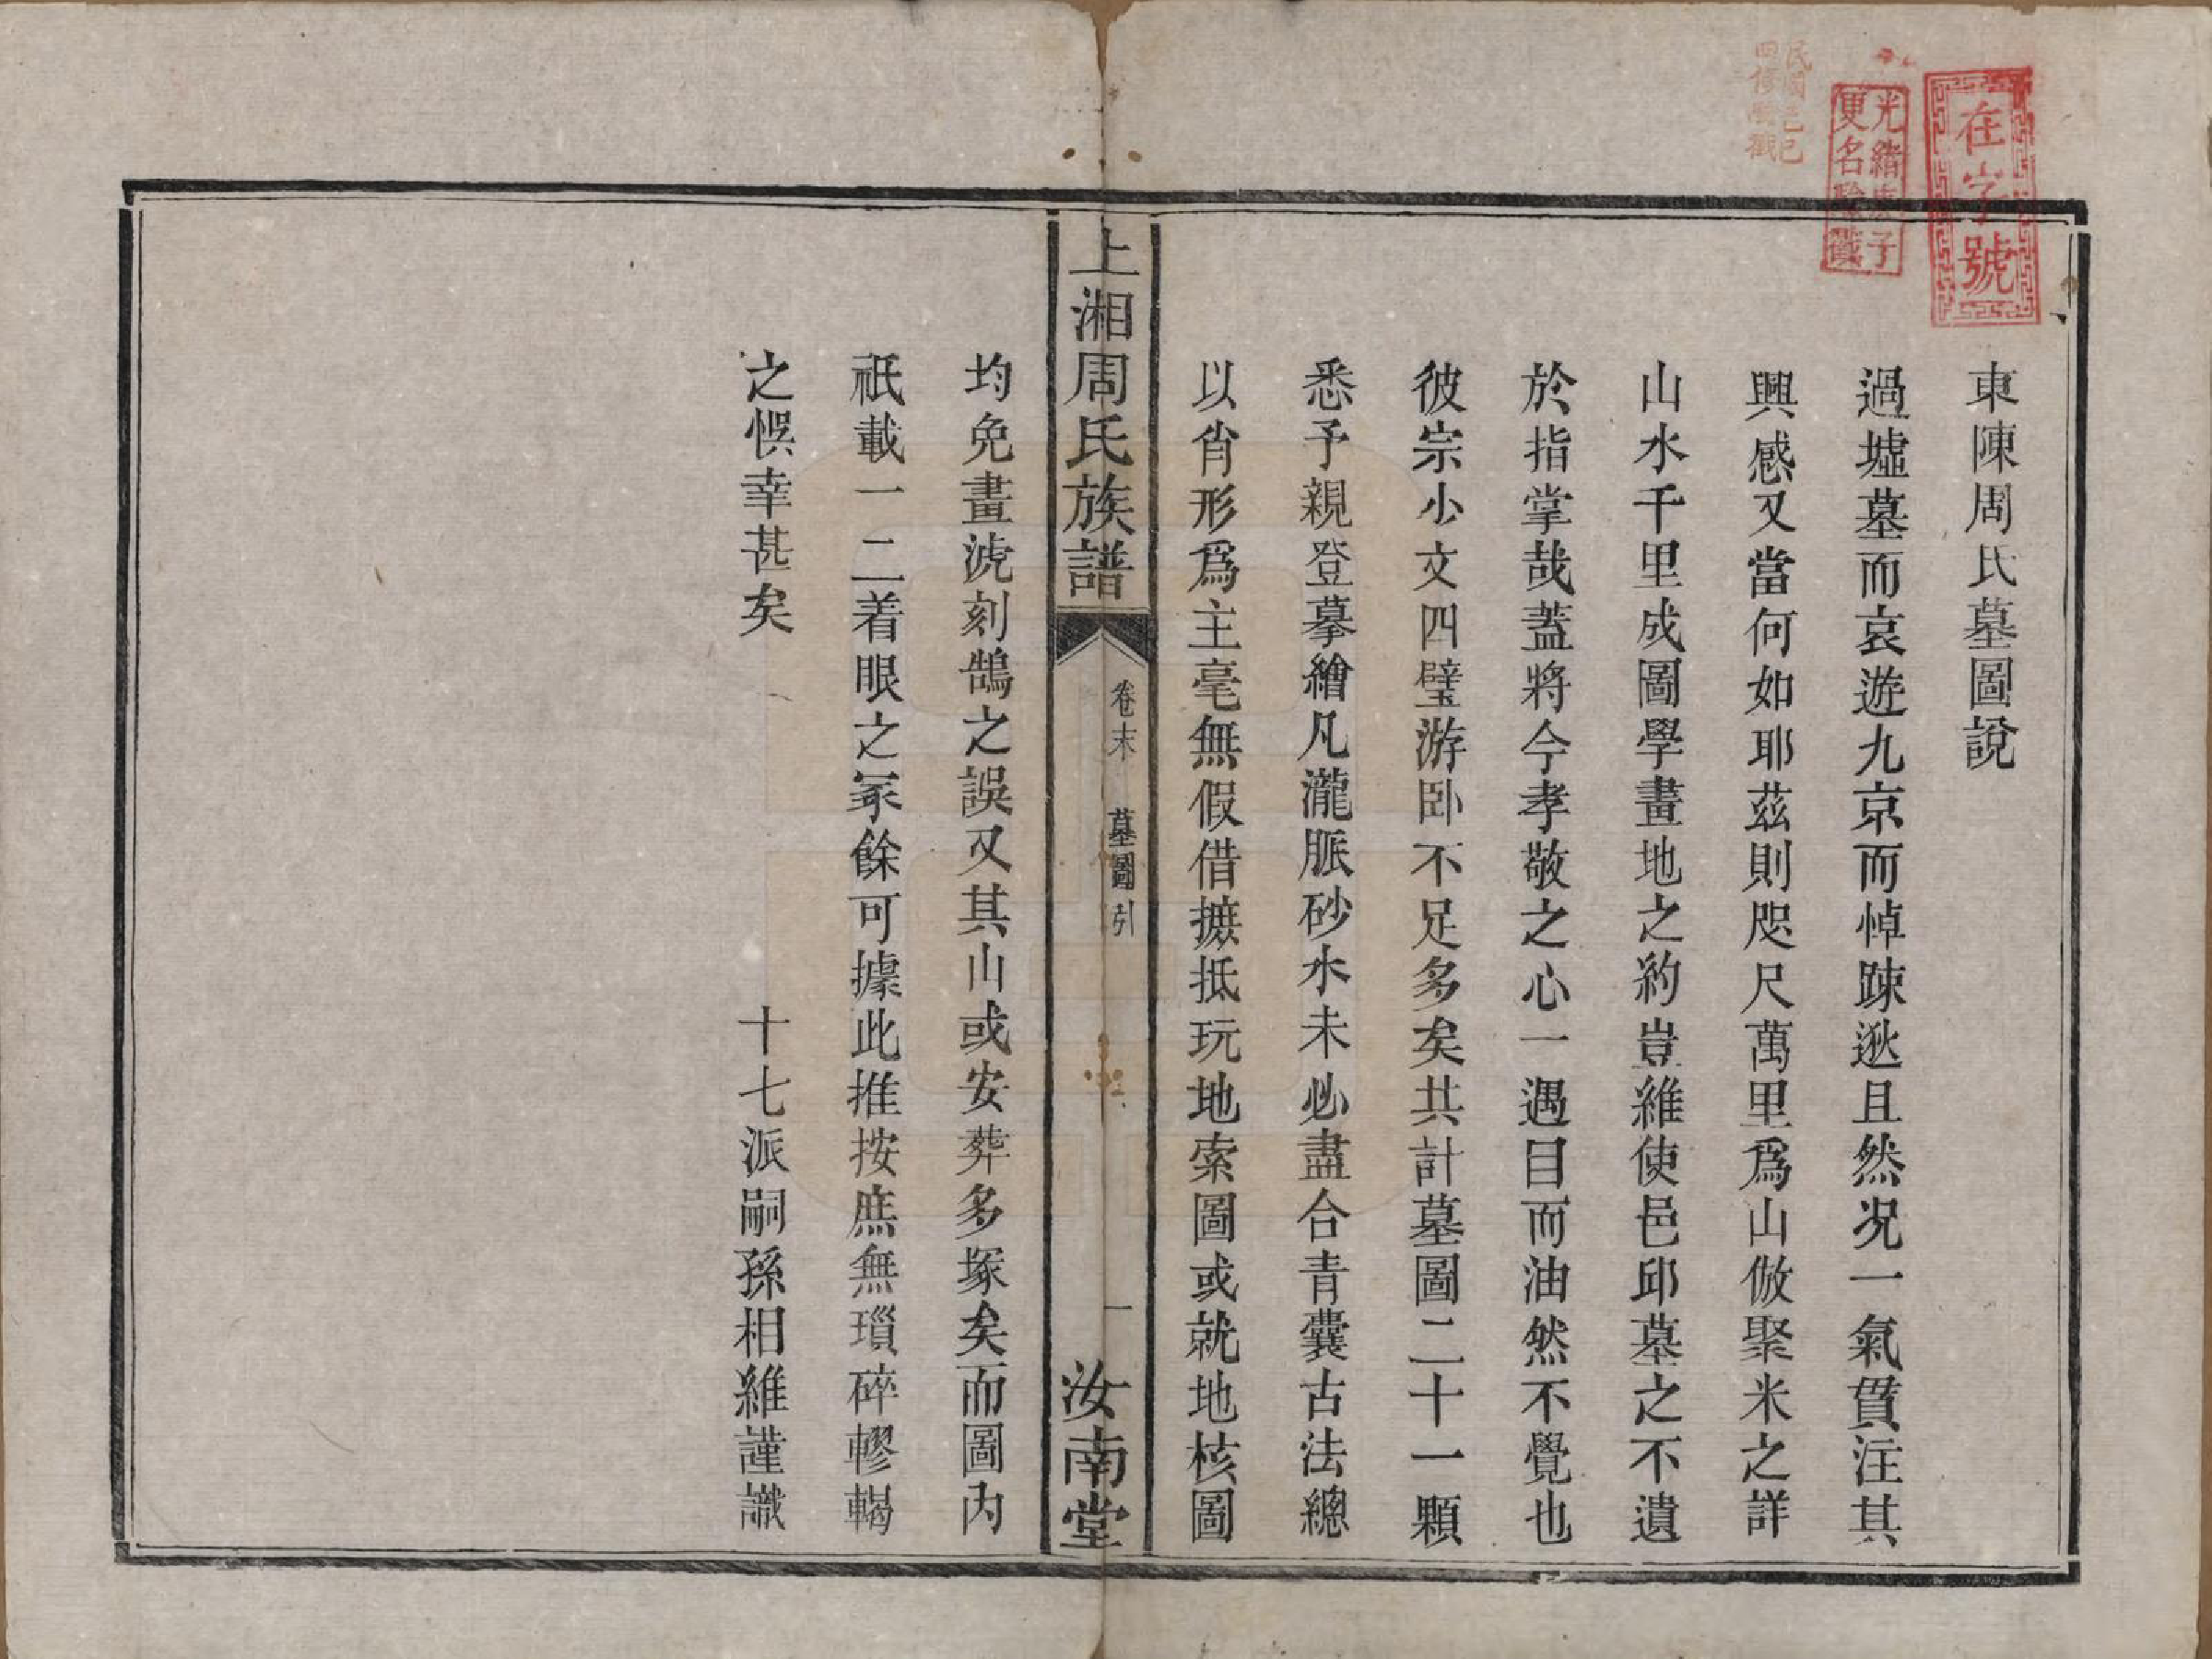 在字號
光緒庚子
更名驗戳
民國己巳
四修戳
東陳周氏墓圖說
過墟墓而哀遊九京而悼踈逖且然况一氣貫注其
興感又當何如耶茲則咫尺萬里爲山倣聚米之詳
山水千里成圖學畫地之約豈維使邑邱墓之不遺
於指掌哉蓋將令孝敬之心一遇目而油然不覺也
彼宗小文四璧游卧不足多矣共計墓圖二十一顆
悉予親登摹繪凡瀧脈砂水未必盡合青囊古法總
以肖形爲主毫無假借摭抵玩地索圖或就地核圖
上湘周氏族譜
卷末
墓圖引
一
汝南堂
均免畫淲刻鵠之誤又其山或安葬多塚矣而圖內
祇載一二着眼之冢餘可據此推按庶無瑣碎轇輵
之悞幸甚矣
十七派嗣孫相維謹識